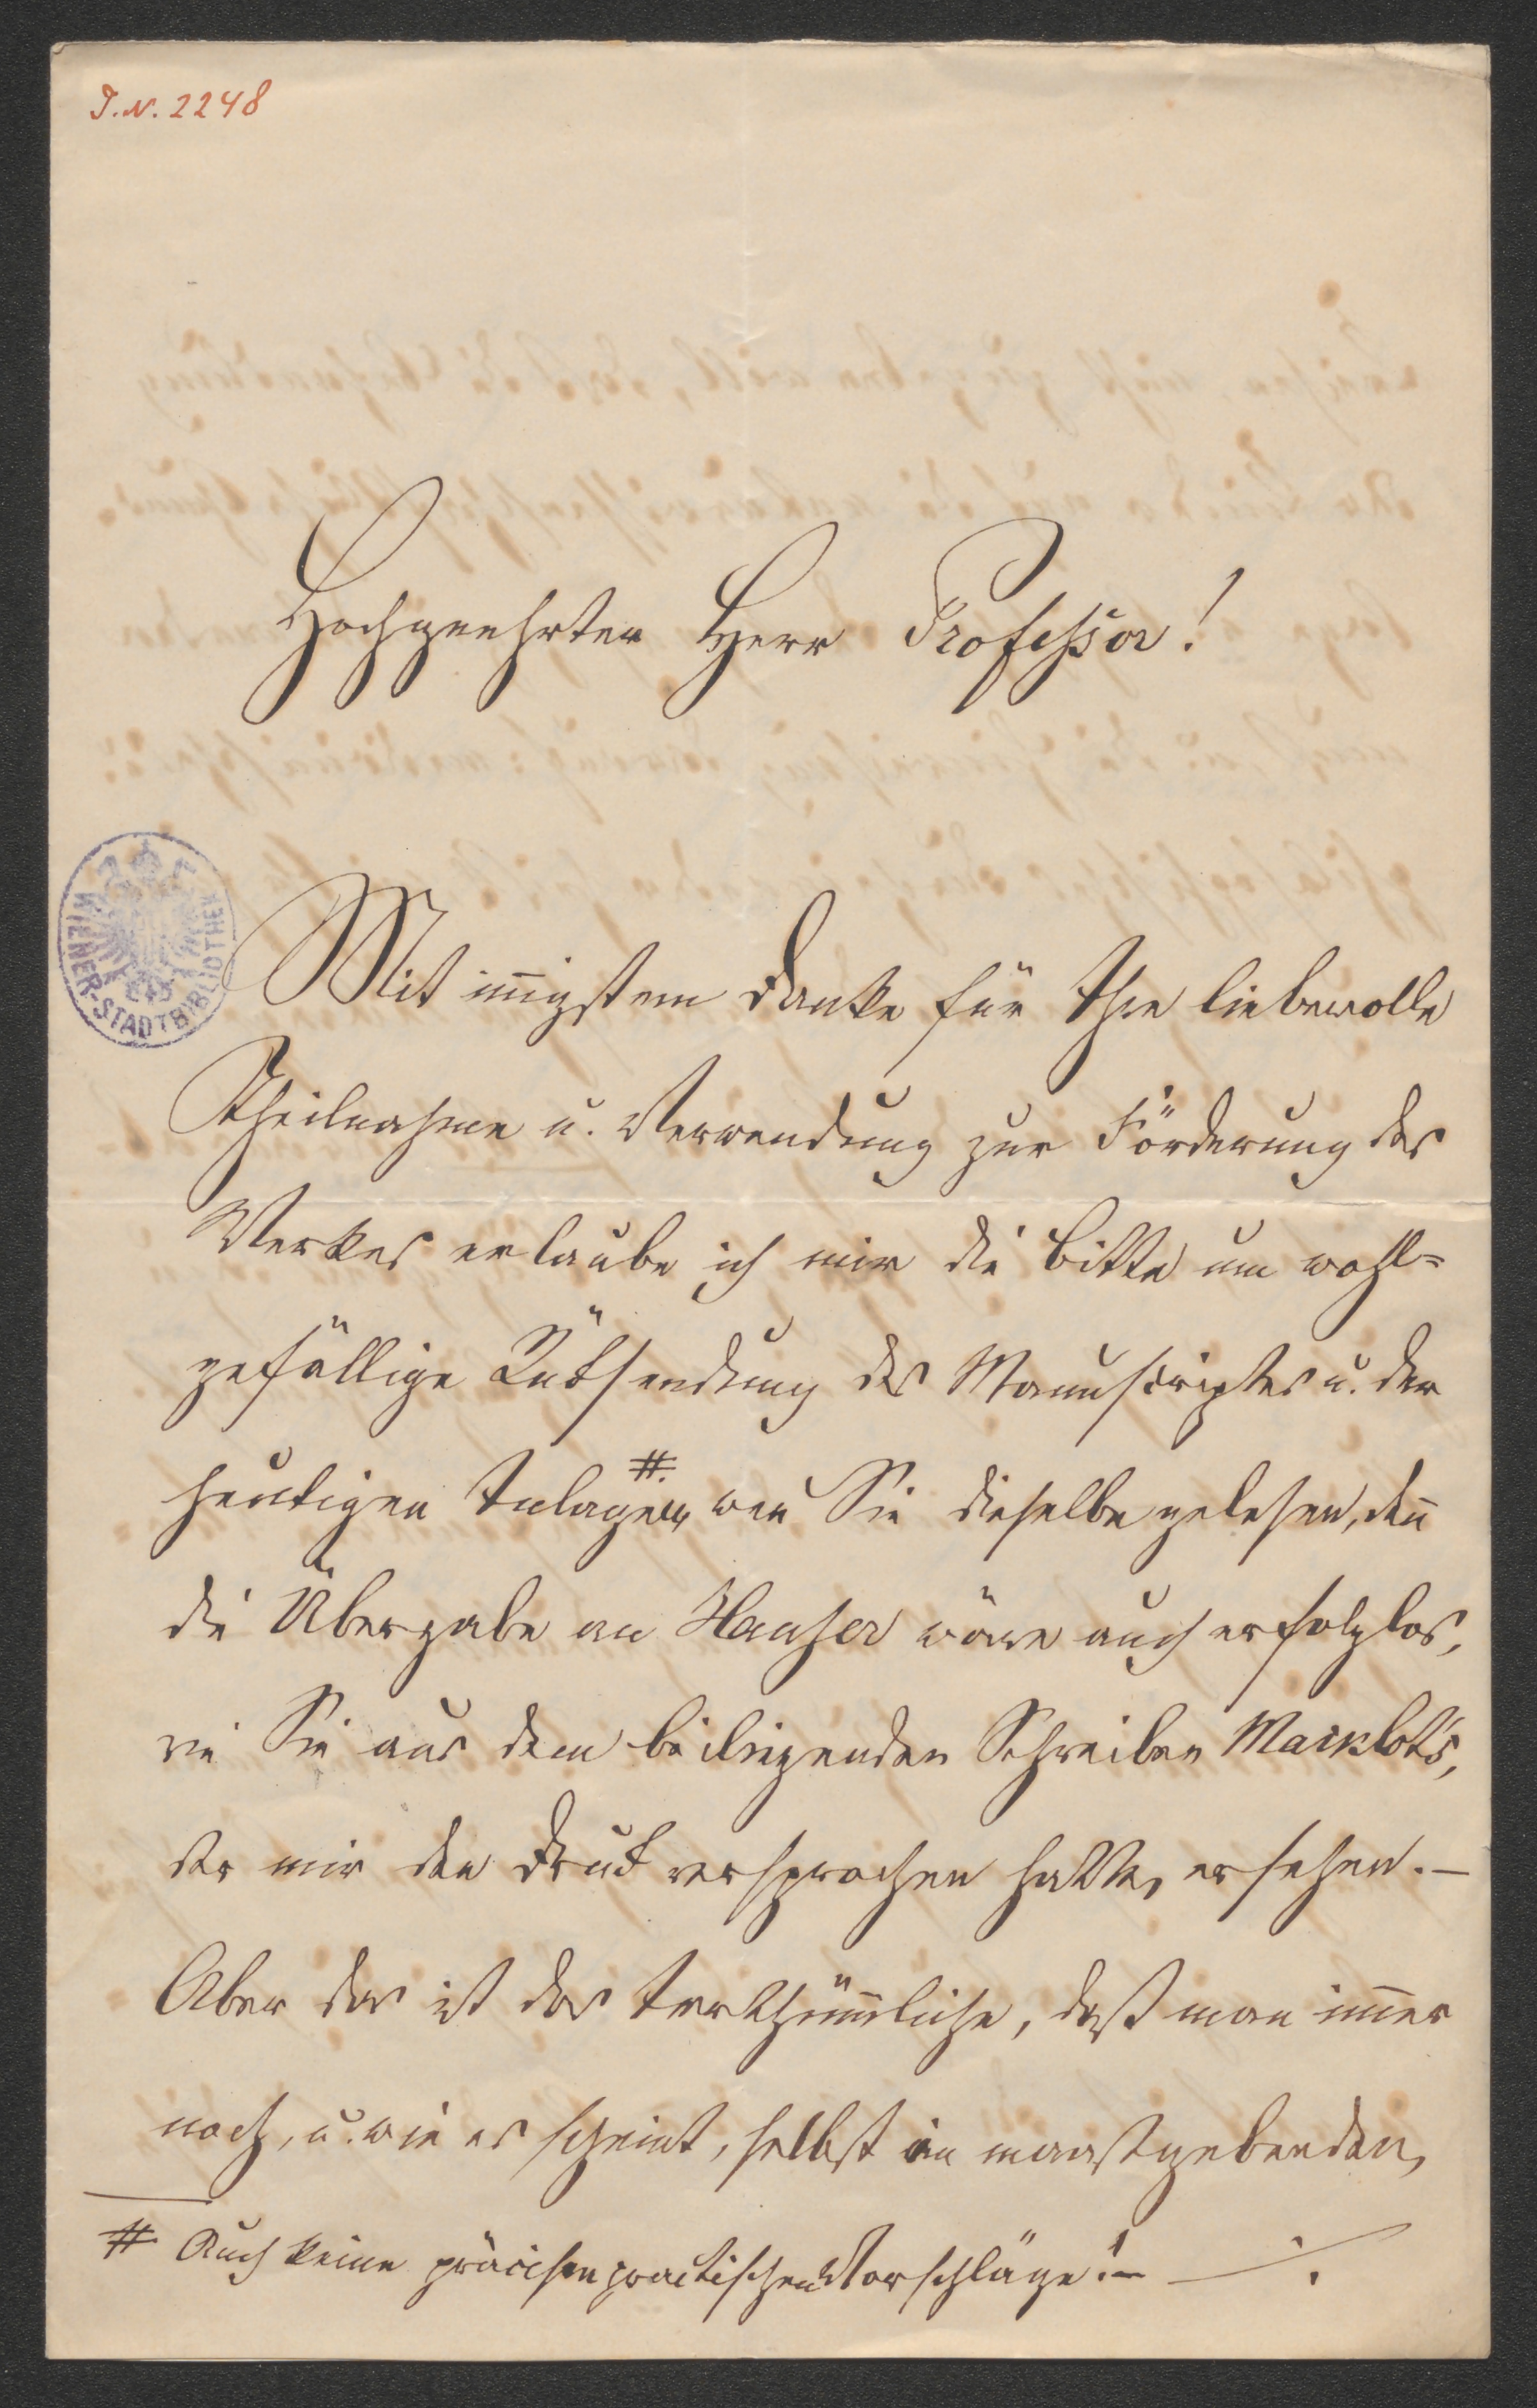 I.N. 2248
Hochgeehrter Herr Professor!
WIENER-STADTBIBLIOTHEK
Mit iñigstem Danke für Ihre liebevolle
Theilnahme u. Verwendung zur Förderung des
Werkes erlaube ich mir die Bitte um wohl=
gefällige Rüksendung des Manuscriptes u. der
heutigen Inlagen, #. weñ Sie dieselbe gelesen, deñ
die Übergabe an Hauser wäre auch erfolglos,
wie Sie aus dem beiliegenden Schreiben Marklot's,
der mir den Druck versprochen hatte, ersehen. —
Aber das ist das Irrthüm̄liche, daß man im̄er
noch, u. wie es scheint, selbst in maaßgebenden,
# Auch keine präcisen practischen Vorschläge! – ./.